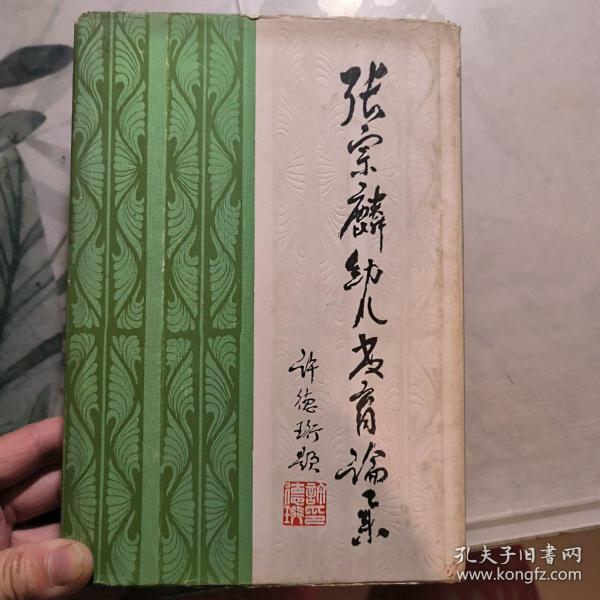 张宗麟幼儿教育论集
许德珩题
许
德珩
孔夫子旧书网
www.kongfz.com